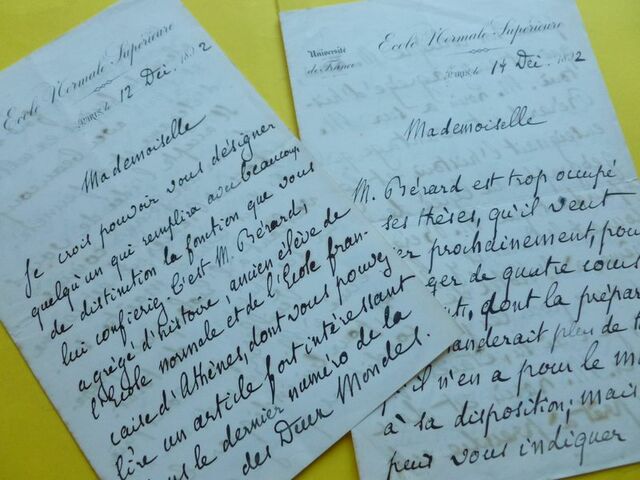 Ecole Normale Supérieure
Paris, le 12 Déc. 1892
Mademoiselle
Je crois pouvoir vous désigner
quelqu'un qui remplira avec beaucoup
de distinction la fonction que vous
lui confierig. C'est M. Bérard,
agrégé d'histoire, ancien élève de
l'Ecole normale et de l'Ecole fran-
caise d'Athènes, dont vous pouvez
lire un article fort intéressant
le dernier numéro de la
des Deux Mondes.
Université
de France
Ecole Normale Supérieure
Paris, le 14 Déc. 1892
Mademoiselle
M. Bérard est trop occupé
ses thèses, qu'il veut
er prochainement, pou
ger de quatre cours
t, dont la prépar
anderait plus de t
il n'en a pour le m
à sa disposition; mais
peux vous indiquer